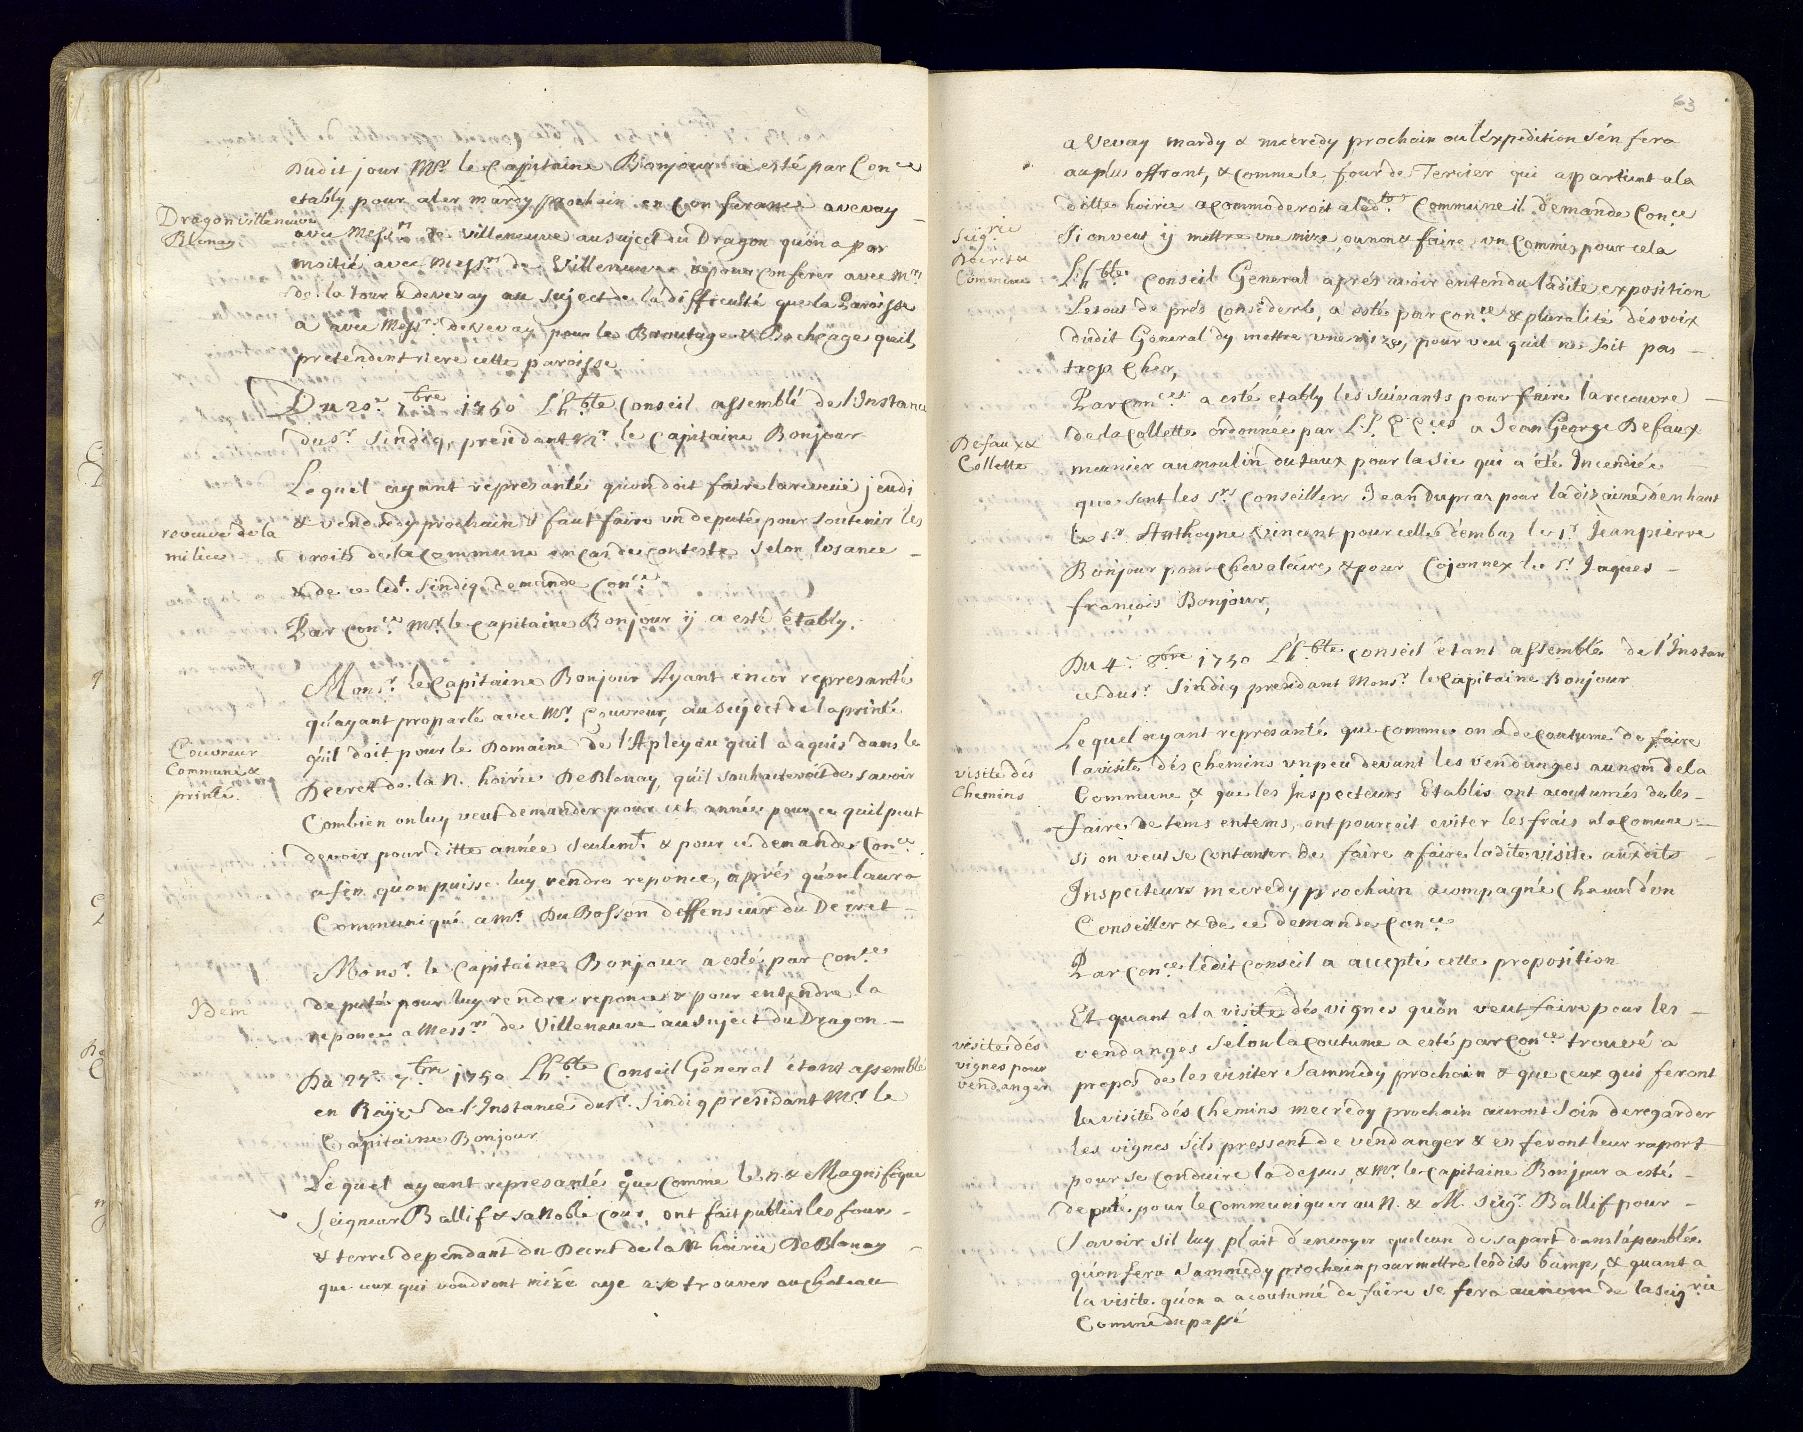 Dudit jour Mr. le Capitaine Bonjour a esté par Con.ce
etably pour aler mardy prochain en Conferance a vevay
Dragon villeneuve
Blonay
avec Messrs. de Villeneuve au sujet du Dragon qu'on a par
moitié avec Messrs. de Villeneuve & pour conferer avec Mrs.
de la tour & de vevay au sujet de la difficulté que la Paroisse
a avec Messrs. de vevay pour le Broutage & Bochéage quils
pretendent riere cette paroisse
Du 20e. 7bre 1750 L'h.ble Conseil assemblé de l'Instance
du Sr. Sindiq, presidant Mr. le Capitaine Bonjour
Lequel ayant represanté quon doit faire la reveuë jeudi
& vendredy prochain & faut faire un deputé pour soutenir les
reveuë de la
milice
droits de la Commune en cas de conteste selon l'usance
& de ce led.t Sindiq demande Con.ce
Par Con.ce Mr. le Capitaine Bonjour ij a esté étably.
Monsr. le Capitaine Bonjour Ayant encor represanté
qu'ayant proparlé avec Mr. Couvreur, au sujet de la printé
Couvreur
Commune &
printé
qu'il doit pour le Domaine de l'Apleyau quil a aquis dans le
Decret de la N. hoirie De Blonay, qu'il souhaiteroit de savoir
Combien on luy veut demander pour cet année pour ce quil peut
devoir pour ditte année seulemt. & pour ce demande Con.ce
afin qu'on puisse luy rendre reponce, aprés qu'on laura
Communiqué a Mr. Du Bosson deffenseur du Decret
Monsr. le Capitaine Bonjour a esté par Con.ce
Idem
deputé pour luy rendre reponce & pour entendre la
reponce a Messrs. de Villeneuve au sujet du Dragon
Du 27e. 7bre 1750 L'h.ble Conseil General étant assemblé
en Raÿze de l'Instance du Sr. Sindiq presidant Mr. le
Capitaine Bonjour
Lequel ayant represanté que comme le N. & Magnifique
Seigneur Ballif & sa Noble Cour, ont fait publier les fours
& terres dependant du Decret de la N. hoirie De Blonay
que ceux qui voudront mizé aye a se trouver au chateau
63
a Vevay mardy & mecredy prochain ou l'expedition s'en fera
au plus offrant, & comme le four de Tercier qui apartient a la
ditte hoirie acommoderoit a ladte. Commune il demande Con.ce
Seig.rie
Decret &
Commune
Si on veut ij mettre une mize, ou non & faire un Commis pour cela
L'h.ble Conseil General aprés avoir entendu ladite exposition
Le tout de prés consideré, a esté par Con.ce & pluralité des voix
dudit General d'y mettre une mize, pour veu quil ne soit pas
trop Cher,
Par Con.ces a esté etably les suivants pour faire la recouvre
de la Collette ordonnée par L.L. E E.ces a Jean George Defaux
Defaux &
Collette
meunier au moulin du taux pour la Sie qui a été Incendiée
que sont les Srs. Conseillers Jean Dupraz pour la dizaine d'enhaut
le Sr. Anthoyne Vincent pour celle d'embas le Sr. Jean pierre
Bonjour pour Chevaleire, & pour Cojonnex le Sr. Jaques
françois Bonjour,
Du 4e. 8bre 1750 L'h.ble conseil étant assemblé de l'Instan
ce du Sr. Sindiq presidant Monsr. le Capitaine Bonjour
Lequel ayant represanté que comme on a de coutume de faire
la visite dés chemins un peu devant les vendanges au nom de la
visite dés
Chemins
Commune & que les Inspecteurs Etablis ont acoutumés de les
faire de tems en tems, ont pourroit eviter les frais a la Comune
si on veut se contanter de faire a faire ladite visite auxdits
Inspecteurs mecredy prochain acompagné Chacun d'un
Conseiller & de ce demande Con.ce
Par Con.ce ledit Conseil a accepté cette proposition
Et quant a la visite dés vignes qu'on veut faire pour les
vendanges selon la Coutume a esté par Con.ce trouvé a
visite dés
vignes pour
vendanger
propos de les visiter Sammedy prochain & que ceux qui feront
la visite dés Chemins mecredy prochain auront soin de regarder
les vignes s'ils pressent de vendanger & en feront leur raport
pour se conduire la dessus, & Mr. le Capitaine Bonjour a esté
deputé pour le communiquer au N. & M. Seigr. Ballif pour
savoir sil luy plait d'envoyer quelcun de sa part dans l'assemblée
qu'on fera Sammedy prochain pour mettre lesdits bamps, & quant a
la visite qu'on a acoutumé de faire se fera au nom de la Seig.rie
Comme du passé